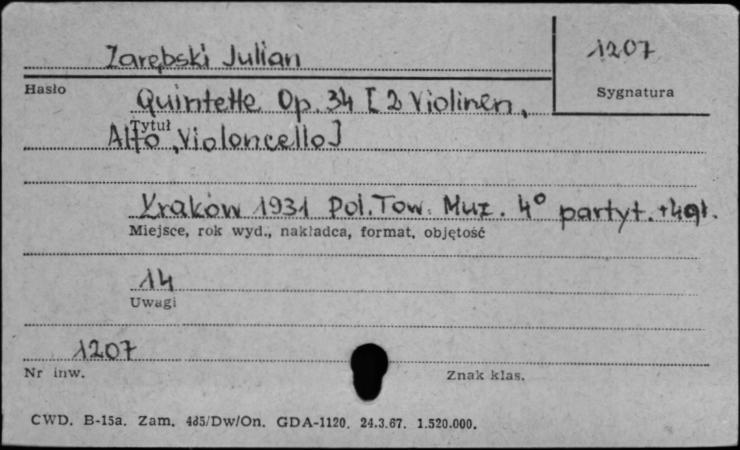 Zarębski Julian
1207
Hasło
Sygnatura
Quintette Op. 34 [2 Violinen,
Tytuł
Alto, Violoncello]
Kraków 1931 Pol. Tow. Muz. 4° partyt. +4gł.
Miejsce, rok wyd., nakładca, format, objętość
14
Uwagi
1207
Nr inw.
Znak klas.
CWD. B-15a. Zam. 485/Dw/On. GDA-1120. 24.3.67. 1.520.000.